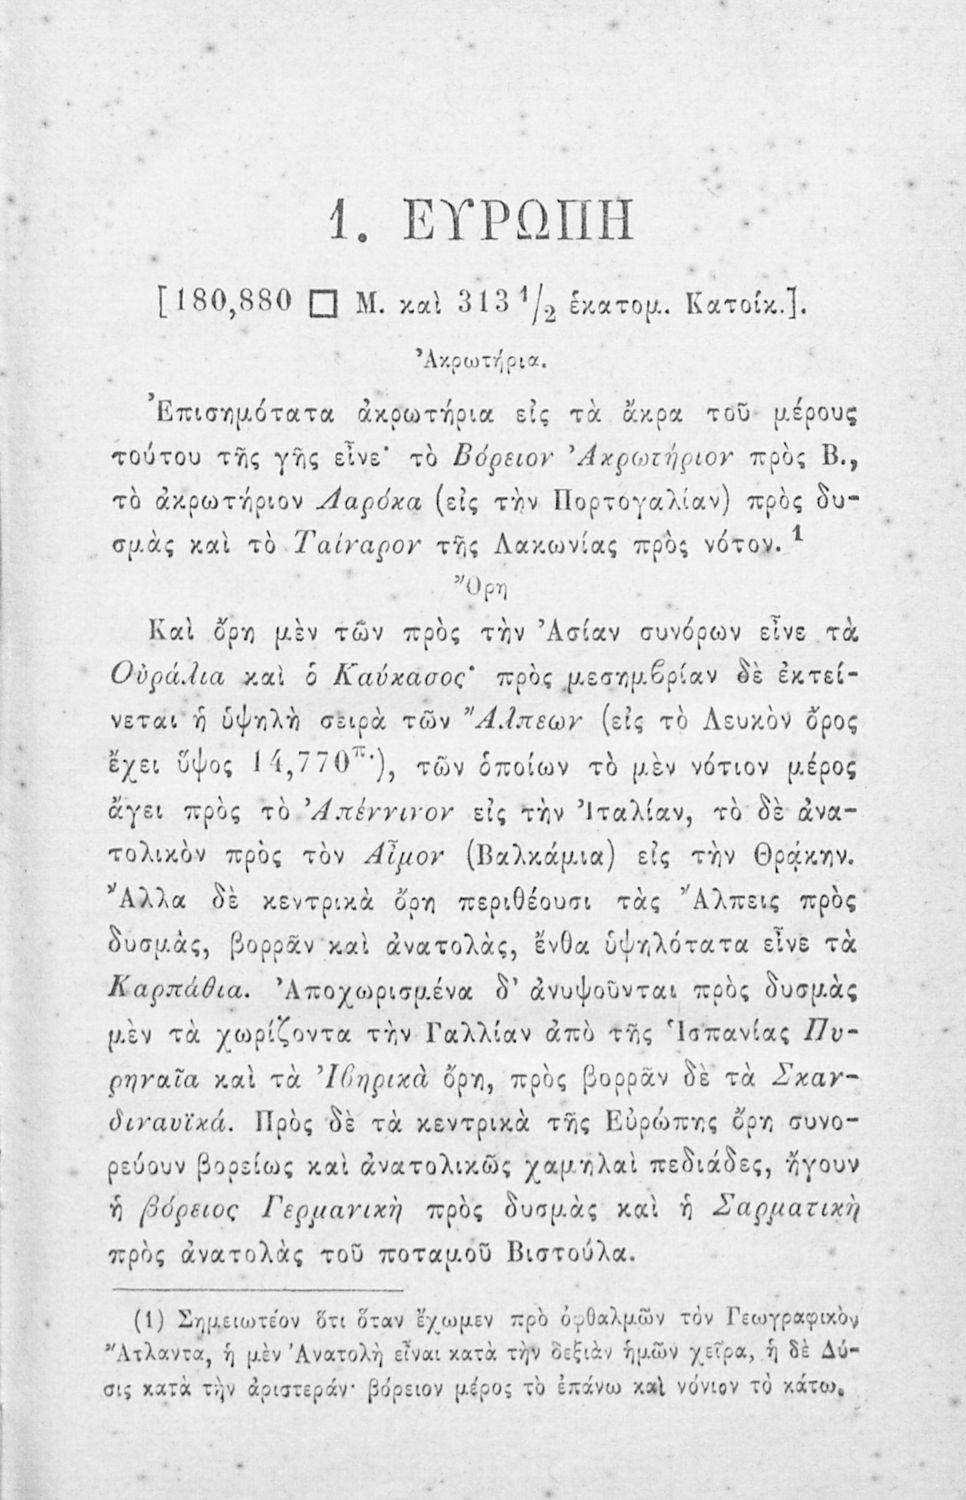 1. ΕΥΡΩΠΗ
[180,880 □ Μ. καὶ 313 1/2 ἑκατομ. Κατοίκ.].
Ἀκρωτήρια.
Ἐπισημότατα ἀκρωτήρια εἰς τὰ ἄκρα τοῦ μέρους
τούτου τῆς γῆς εἶνε· τὸ Βόρειον Ἀκρωτήριον πρὸς Β.,
τὸ ἀκρωτήριον Λαρόκα (εἰς τὴν Πορτογαλίαν) πρὸς δυ-
σμὰς καὶ τὸ Ταίναρον τῆς Λακωνίας πρὸς νότον. 1
Ὄρη
Καὶ ὄρη μὲν τῶν πρὸς τὴν Ἀσίαν συνόρων εἶνε τὰ
Οὐράλια καὶ ὁ Καύκασος· πρὸς μεσημβρίαν δὲ ἐκτεί-
νεται ἡ ὑψηλὴ σειρὰ τῶν Ἄλπεων (εἰς τὸ Λευκὸν ὄρος
ἔχει ὕψος 14,770π.), τῶν ὁποίων τὸ μὲν νότιον μέρος
ἄγει πρὸς τὸ Ἀπέννινον εἰς τὴν Ἰταλίαν, τὸ δὲ ἀνα-
τολικὸν πρὸς τὸν Αἷμον (Βαλκάμια) εἰς τὴν Θρᾴκην.
Ἄλλα δὲ κεντρικὰ ὄρη περιθέουσι τὰς Ἄλπεις πρὸς
δυσμὰς, βορρᾶν καὶ ἀνατολὰς, ἔνθα ὑψηλότατα εἶνε τὰ
Καρπάθια. Ἀποχωρισμένα δ' ἀνυψοῦνται πρὸς δυσμὰς
μὲν τὰ χωρίζοντα τὴν Γαλλίαν ἀπὸ τῆς Ἱσπανίας Πυ-
ρηναῖα καὶ τὰ Ἰβηρικὰ ὄρη, πρὸς βορρᾶν δὲ τὰ Σκαν-
διναυϊκά. Πρὸς δὲ τὰ κεντρικὰ τῆς Εὐρώπης ὄρη συνο-
ρεύουν βορείως καὶ ἀνατολικῶς χαμηλαὶ πεδιάδες, ἤγουν
ἡ βόρειος Γερμανικὴ πρὸς δυσμὰς καὶ ἡ Σαρματικὴ
πρὸς ἀνατολὰς τοῦ ποταμοῦ Βιστούλα.
(1) Σημειωτέον ὅτι ὅταν ἔχωμεν πρὸ ὀφθαλμῶν τὸν Γεωγραφικὸν
Ἄτλαντα, ἡ μὲν Ἀνατολὴ εἶναι κατὰ τὴν δεξιὰν ἡμῶν χεῖρα, ἡ δὲ Δύ-
σις κατὰ τὴν ἀριστεράν· βόρειον μέρος τὸ ἐπάνω καὶ νόνιον τὸ κάτω.